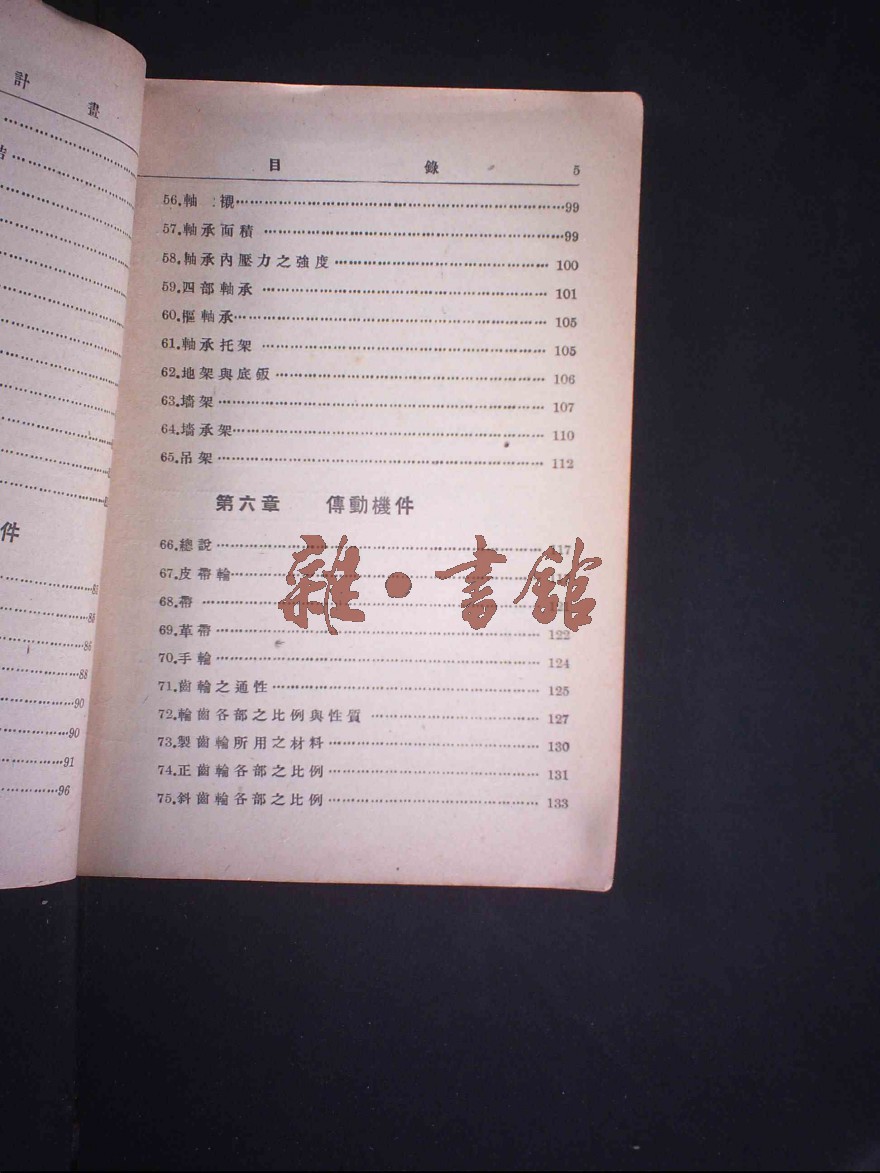 計畫
85
86
86
88
90
90
91
96
件
目錄 5
56.軸襯 99
57.軸承面積 99
58.軸承內壓力之強度 100
59.四部軸承 101
60.樞軸承 105
61.軸承托架 105
62.地架與底鈑 106
63.墻架 107
64.墻承架 110
65.吊架 112
第六章 傳動機件
66.總說 117
67.皮帶輪
68.帶 121
69.革帶 122
70.手輪 124
71.齒輪之通性 125
72.輪齒各部之比例與性質 127
73.製齒輪所用之材料 130
74.正齒輪各部之比例 131
75.斜齒輪各部之比例 133
雜·書館